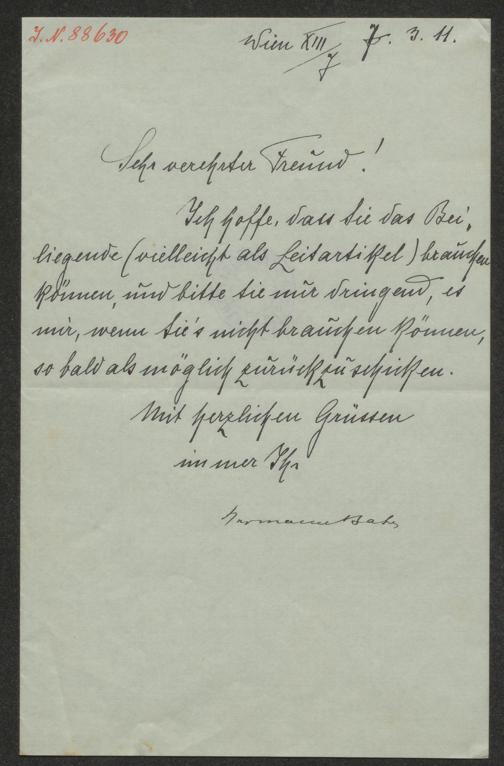 J.N. 88630
Wien XIII/7 7. 3. 11.
Sehr verehrter Freund!
Ich hoffe, dass Sie das Bei-
liegende (vielleicht als Leitartikel) brauchen
können, und bitte Sie nur dringend, es
mir, wenn Sie's nicht brauchen können,
so bald als möglich zurückzuschicken.
Mit herzlichen Grüssen
immer Ihr
Hermann Bahr